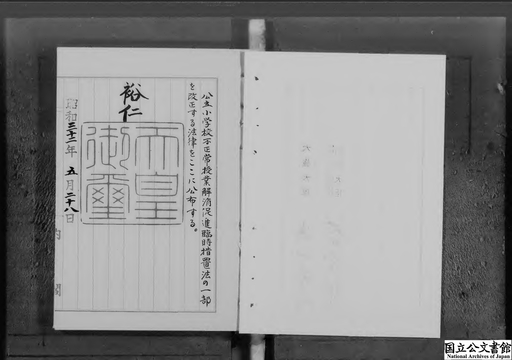 公立小学校不正常授業解消促進臨時措置法の一部
を改正する法律をここに公布する。
裕仁
天皇
御璽
昭和三十二年 五月二十八日
内閣
国立公文書館
National Archives of Japan